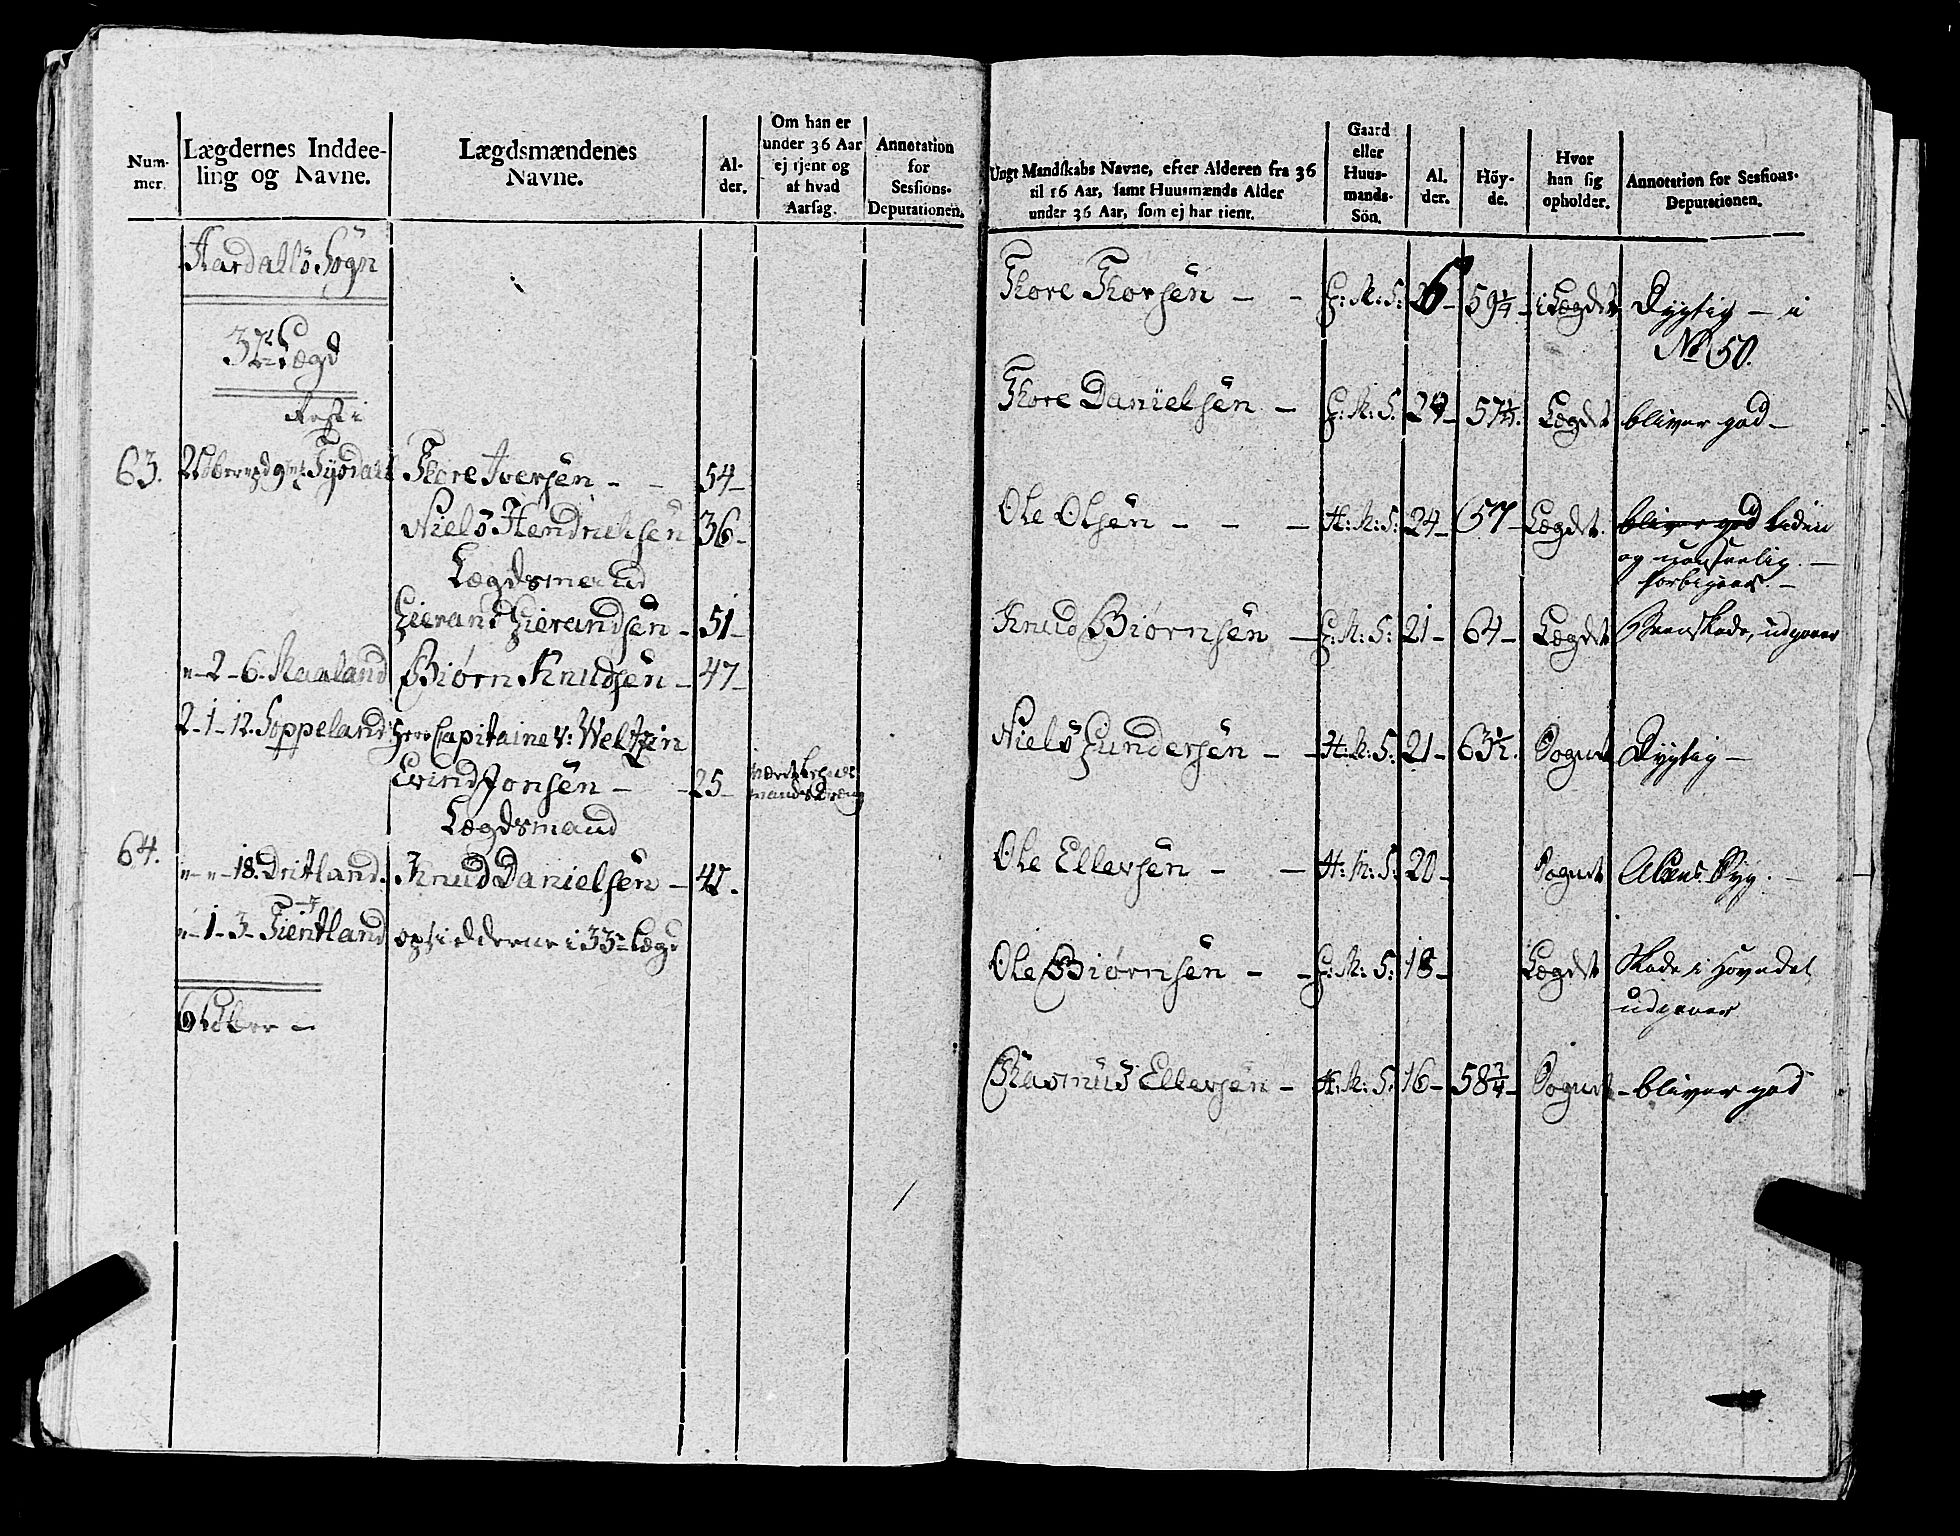 Num-
mer.
Lægdernes Inddee-
ling og Navne.
Lægdsmændenes
Navne.
Al-
der.
Om han er
under 36 Aar
ej tjent og
af hvad
Aarsag.
Annotation
for
Sessions-
Deputationen.
Aardals Sogn
32te Lægd
Rest i
63.
Tysdal
Thore Iversen - - 54-
Niels Hendrichsen 36-
Lægdsmænd
Gierand Gierandsen - 51-
"-2-6. Maaland Biørn Knudsen - 47-
2-1-12. Soppeland Herr Capitaine v: Weltzin
Evind Jonsen - - 25-
Lægdsmand
64.
"-"-18. Dritland. Knud Danielsen - 47.
"-1-3- Fientland opsidderne i 33te Lægd
Ungt Mandskabs Navne, efter Alderen fra 36
til 16 Aar, samt Huusmænds Alder
under 36 Aar, som ej har tient.
Gaard
eller
Huus-
mands-
Sön.
Al.
der.
Höy-
de.
Hvor
han sig
opholder.
Annotation for Sessions-
Deputationen.
Thore Thorsen - - G: M: S: 26- 59 1/4- i Lægdet Dygtig - i
No 50.
Thore Danielsen - G: M: S. 24- 57 1/2. Lægdet bliver god-
Ole Olsen - - - H: M: S: 24- 57- Lægdet. bliver god liden
og
forbigaaes. -
Knud Biørnsen - G: M: S: 21- 64- Lægdet udgaaer
Niels Gundersen - - H: M: S: 21- 63 1/2. Sognet Dygtig -
Ole Ellevsen - - H: M: S: 20- Sognet
Ole Biørnsen - - G: M: S: 18- Lægdet Skade i Hovedet
udgaaer
Rasmus Ellevsen - H: M: S: 16- 58 3/4- Sognet - bliver god